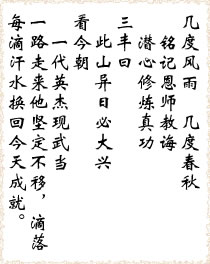 几度风雨 几度春秋
铭记恩师教诲
潜心修炼真功
三丰曰
此山异日必大兴
看今朝
一代英杰现武当
一路走来他坚定不移，滴落
每滴汗水换回今天成就。